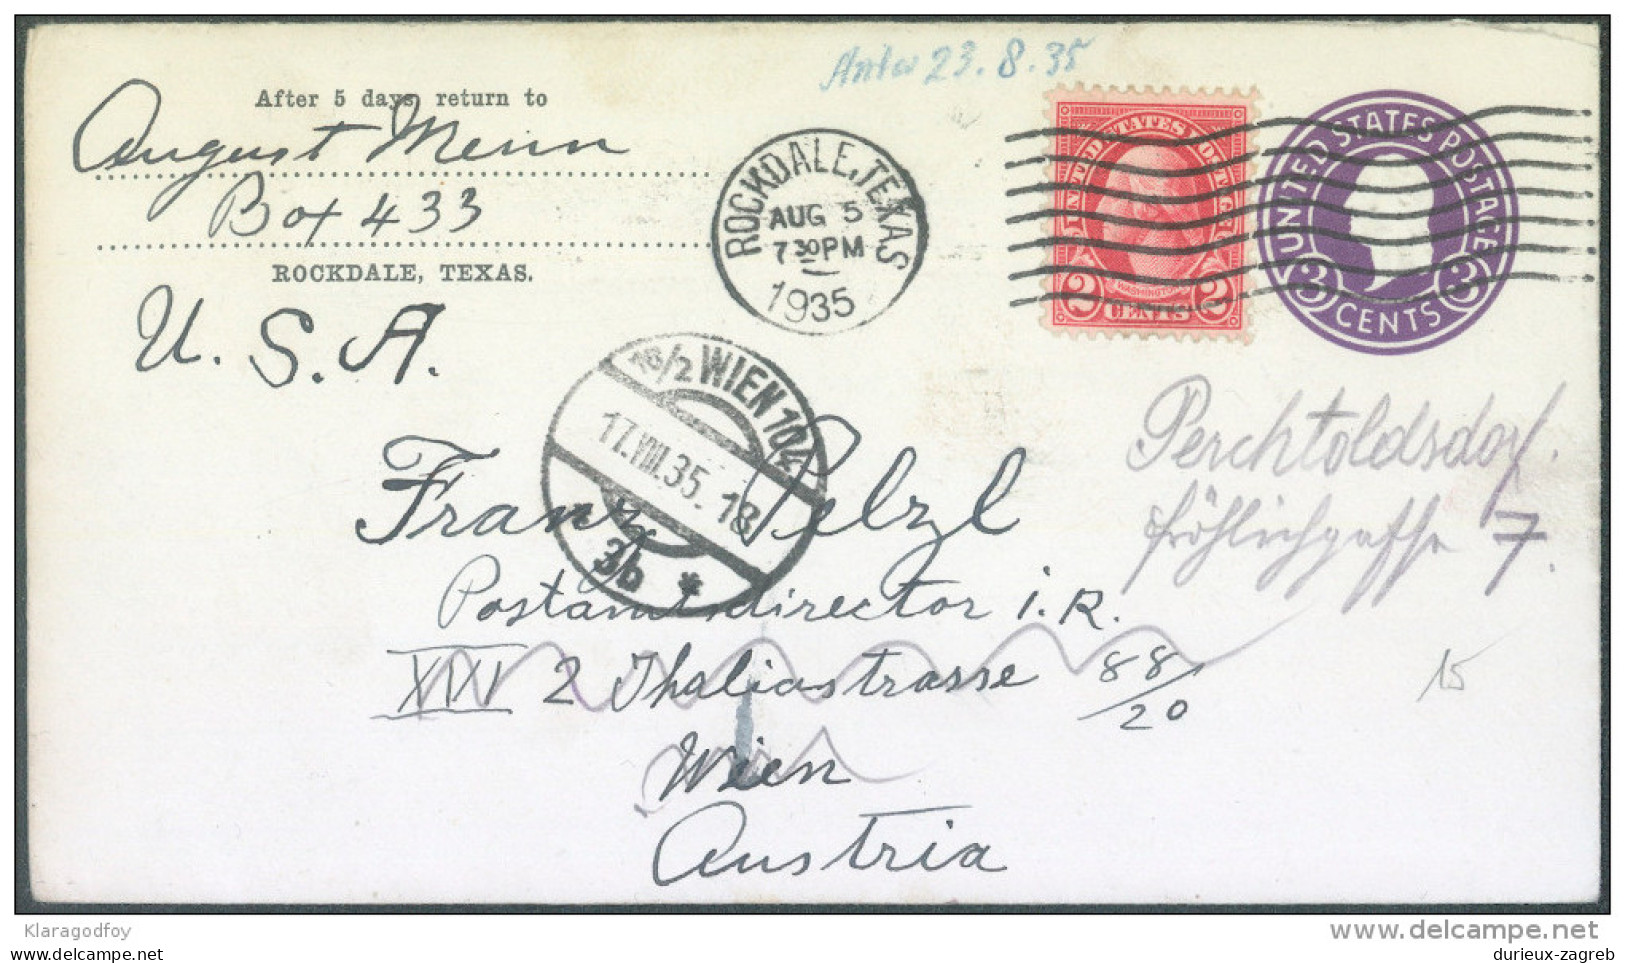 23.8.35
After 5 days, return to
August Menn
Box 433
ROCKDALE, TEXAS.
U.S.A.
ROCKDALE, TEXAS
AUG 5
7 30 PM
1935
UNITED STATES POSTAGE
WASHINGTON
2 CENTS 2
UNITED STATES POSTAGE
3 CENTS 3
18/2 WIEN 104
17.VIII.35. 18
3b *
Perchtoldsdorf.
Fröhlichgasse 7.
Franz Pelzl
Postamtsdirector i.R.
XIII 2 Thaliastrasse 88/20
15
Wien
Austria
Klaragodfoy
www.delcampe.net
durieux-zagreb